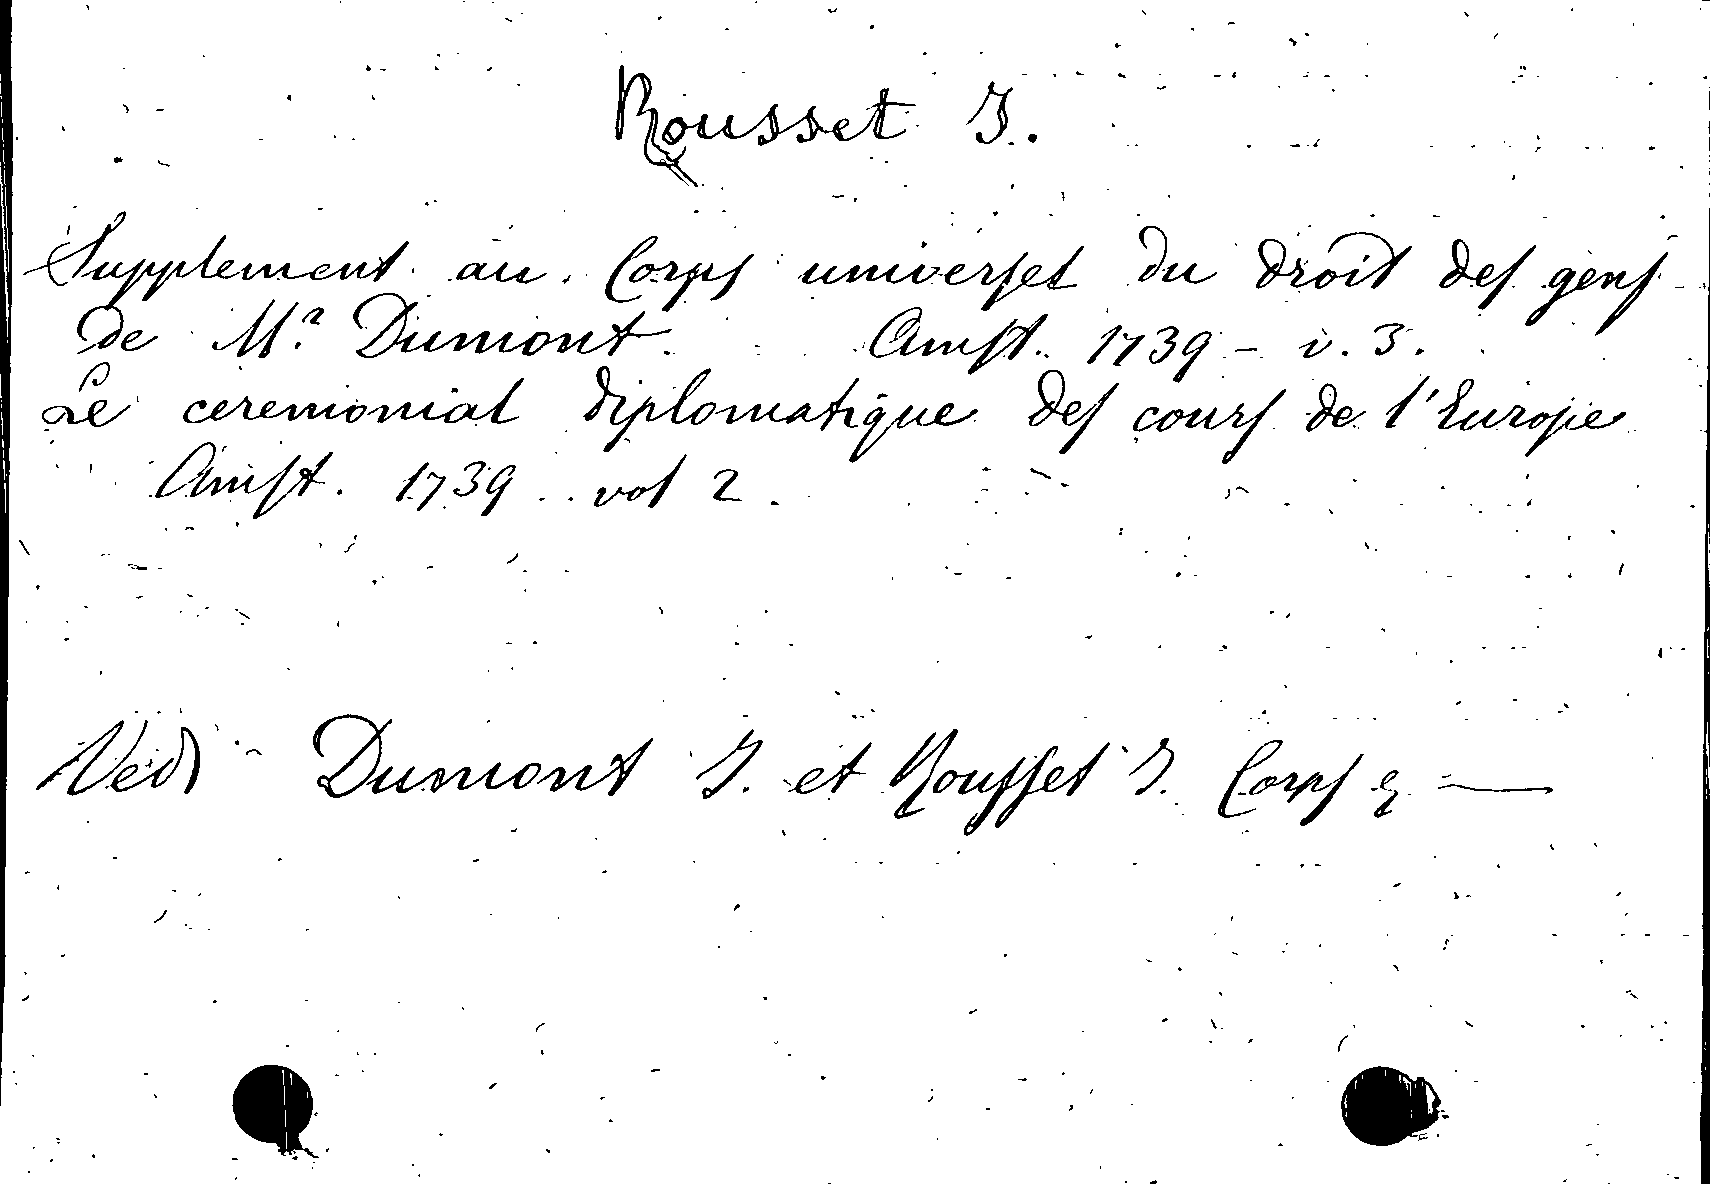 Rousset J.
Supplement au Corps universel du droit des gens
de Mr. Dumont. Amst. 1739 - v. 3.
Le ceremonial diplomatique des cours de l'Europe
Amst. 1739 vol 2.
Vedi Dumont J. et Rousset J. Corps &